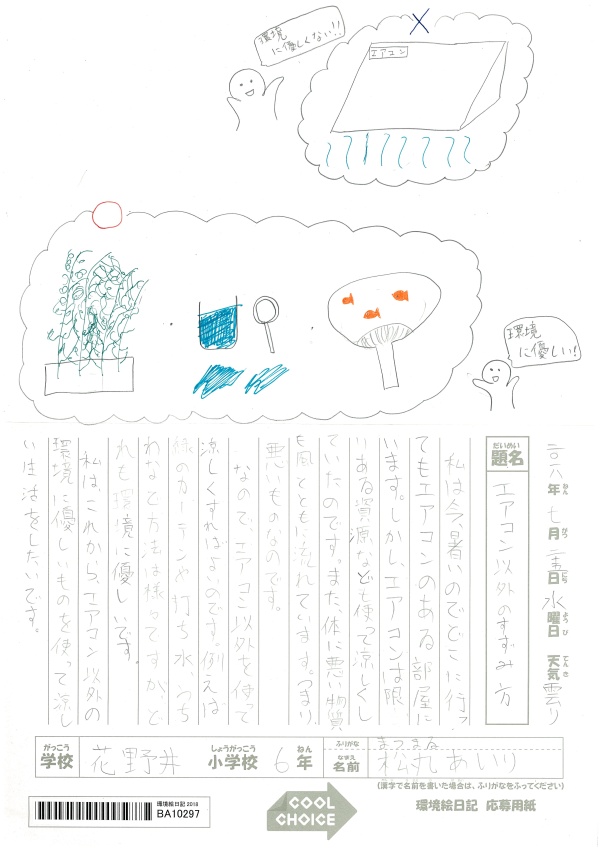 環境
に優しくない!!
エアコン
環境
に優しい!
二〇一八年ねん 七月がつ 二十五日にち 水曜日ようび 天気てんき 曇り
題名だいめい
エアコン以外のすずみ方
私は今、暑いのでどこに行っ
てもエアコンのある部屋に
います。しかし、エアコンは限
りある資源なども使って涼しくし
ていたのです。また、体に悪い物質
も風とともに流れています。つまり
悪いものなのです。
なので、エアコン以外を使って
涼しくすればよいのです。例えば
緑のカーテンや打ち水、うち
わなど方法は様々ですが、ど
れも環境に優しいです。
私は、これから、エアコン以外の
環境に優しいものを使って涼し
い生活をしたいです。
がっこう しょうがっこう ねん ふりがな まつまる
学校 花野井 小学校 6年 なまえ 名前 松丸あいり
(漢字で名前を書いた場合は、ふりがなをふってください)
環境絵日記2018
BA10297
COOL
CHOICE
環境絵日記 応募用紙